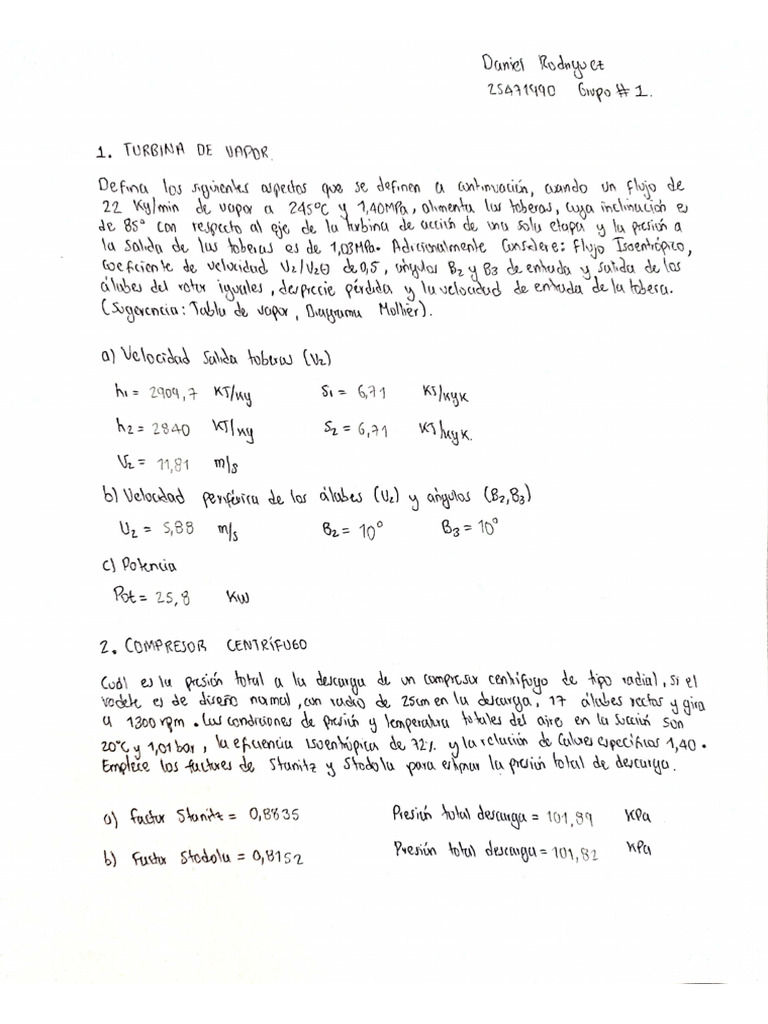 Daniel Rodriguez
25471990 Grupo # 1.
1. TURBINA DE VAPOR.
Defina los siguientes aspectos que se definen a continuación, cuando un flujo de
22 Kg/min de vapor a 245°C y 1,40MPa, alimenta las toberas, cuya inclinación es
de 85° con respecto al eje de la turbina de acción de una sola etapa y la presión a
la salida de las toberas es de 1,03MPa. Adicionalmente Considere: Flujo Isoentrópico,
coeficiente de velocidad U2/V2θ de 0,5, ángulos B2 y B3 de entrada y salida de los
álabes del rotor iguales, desprecie pérdida y la velocidad de entrada de la tobera.
(Sugerencia: Tabla de vapor, Diagrama Mollier).
a) Velocidad Salida toberas (V2)
h1 = 2909,7 KJ/Kg S1 = 6,71 KJ/KgK
h2 = 2840 KJ/Kg S2 = 6,71 KJ/KgK.
V2 = 11,81 m/s
b) Velocidad periférica de los álabes (U2) y ángulos (B2,B3)
U2 = 5,88 m/s B2 = 10° B3 = 10°
c) Potencia
Pot = 25,8 KW
2. COMPRESOR CENTRÍFUGO
Cuál es la presión total a la descarga de un compresor centrífugo de tipo radial, si el
rodete es de diseño normal, con radio de 25cm en la descarga, 17 álabes rectos y gira
a 1300 rpm. Las condiciones de presión y temperatura totales del aire en la succión son
20°C y 1,01 bar, la eficiencia isoentrópica de 72% y la relación de Calores específicos 1,40.
Emplece los factores de Stanitz y Stodola para estimar la presión total de descarga.
a) Factor Stanitz = 0,8835 Presión total descarga = 101,89 KPa
b) Factor Stodola = 0,8152 Presión total descarga = 101,82 KPa